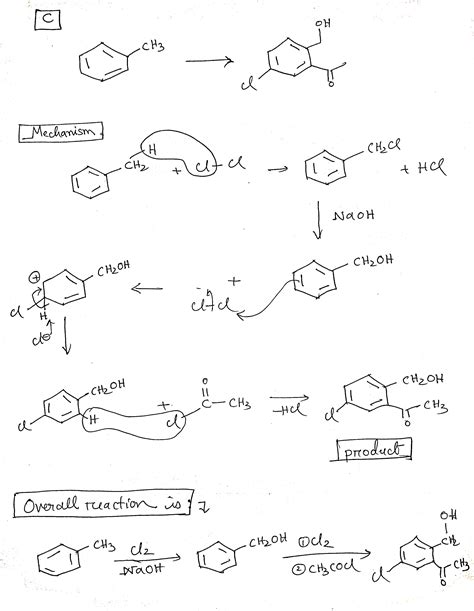 C
CH3
OH
cl
O
Mechanism
H
CH2 + cl-cl → CH2Cl + HCl
NaOH
CH2OH
+
⊕ CH2OH
cl H
cl⊖
cl+cl
CH2OH
cl H + cl C CH3
O
-Hcl
CH2OH
CH3
cl O
product
Overall reaction is :
CH3 Cl2 CH2OH ①Cl2
NaOH ②CH3COCl
OH
CH2
CH3
cl O